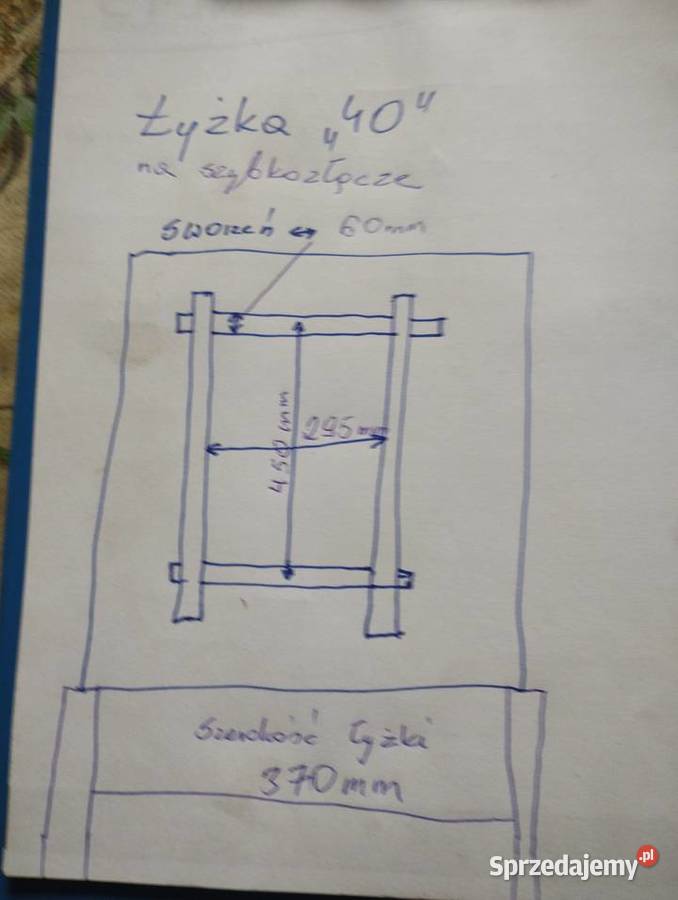 Łyżka „40"
na szybkozłącze
sworzeń ↔ 60mm
450mm
295mm
Szerokość łyżki
370mm
Sprzedajemy.pl